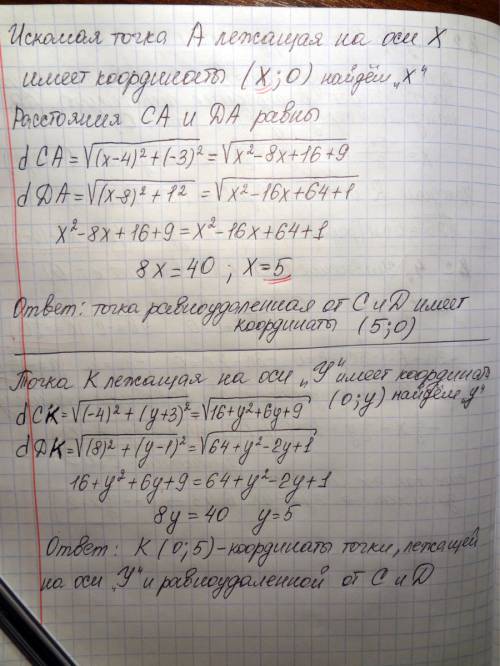 Искомая точка А лежащая на оси Х
имеет координаты (Х;0) найдём „Х"
Расстояния СА и DА равны
d CA=√(x-4)²+(-3)²=√x²-8x+16+9
d DA=√(x-8)²+12 =√x²-16x+64+1
x²-8x+16+9=x²-16x+64+1
8x=40 ; x=5
Ответ: точка равноудаленная от С и D имеет
координаты (5;0)
Точка К лежащая на оси „У" имеет координаты
(0;у) найдём „у"
d CK=√(-4)²+(y+3)²=√16+y²+6y+9
d DK=√(8)²+(y-1)²=√64+y²-2y+1
16+y²+6y+9=64+y²-2y+1
8y=40 y=5
Ответ: К (0;5)-координаты точки, лежащей
на оси „У" и равноудаленной от С и D